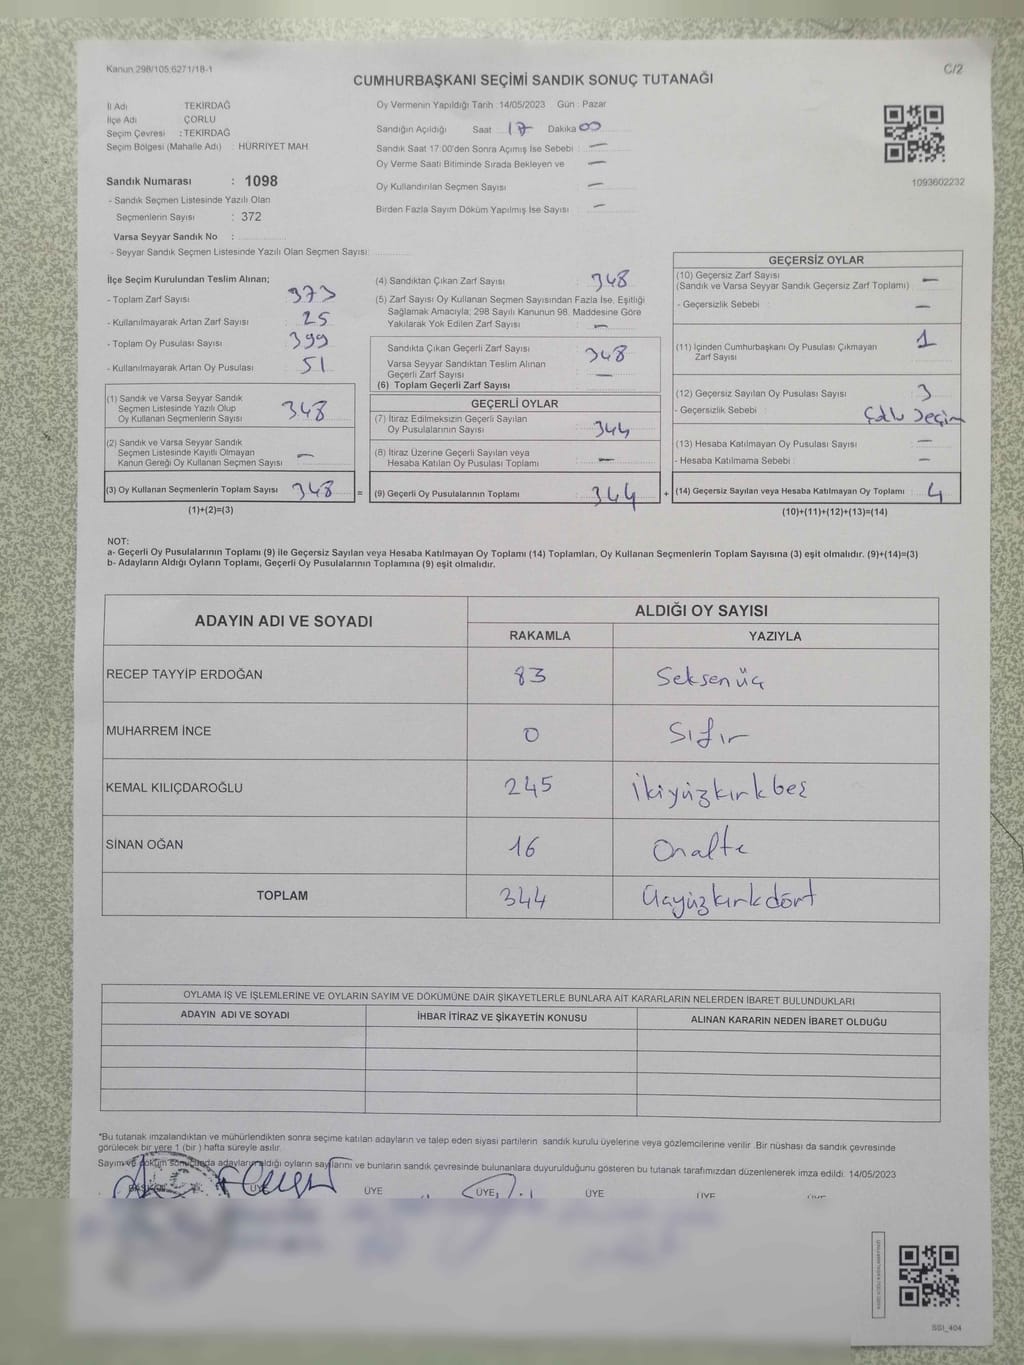 Kanun 298/105,6271/18-1
C/2
CUMHURBAŞKANI SEÇİMİ SANDIK SONUÇ TUTANAĞI
İl Adı TEKİRDAĞ
İlçe Adı ÇORLU
Seçim Çevresi : TEKİRDAĞ
Seçim Bölgesi (Mahalle Adı) : HÜRRİYET MAH
Sandık Numarası : 1098
- Sandık Seçmen Listesinde Yazılı Olan
Seçmenlerin Sayısı : 372
Varsa Seyyar Sandık No :
- Seyyar Sandık Seçmen Listesinde Yazılı Olan Seçmen Sayısı:
Oy Vermenin Yapıldığı Tarih : 14/05/2023 Gün : Pazar
Sandığın Açıldığı Saat 17 Dakika 00
Sandık Saat 17:00'den Sonra Açımış İse Sebebi : —
Oy Verme Saati Bitiminde Sırada Bekleyen ve —
Oy Kullandırılan Seçmen Sayısı —
Birden Fazla Sayım Döküm Yapılmış İse Sayısı : —
1093602232
İlçe Seçim Kurulundan Teslim Alınan;
- Toplam Zarf Sayısı : 373
- Kullanılmayarak Artan Zarf Sayısı : 25
- Toplam Oy Pusulası Sayısı : 399
- Kullanılmayarak Artan Oy Pusulası : 51
(1) Sandık ve Varsa Seyyar Sandık
Seçmen Listesinde Yazılı Olup
Oy Kullanan Seçmenlerin Sayısı : 348
(2) Sandık ve Varsa Seyyar Sandık
Seçmen Listesinde Kayıtlı Olmayan
Kanun Gereği Oy Kullanan Seçmen Sayısı : —
(3) Oy Kullanan Seçmenlerin Toplam Sayısı : 348
(1)+(2)=(3)
(4) Sandıktan Çıkan Zarf Sayısı : 348
(5) Zarf Sayısı Oy Kullanan Seçmen Sayısından Fazla İse, Eşitliği
Sağlamak Amacıyla; 298 Sayılı Kanunun 98. Maddesine Göre
Yakılarak Yok Edilen Zarf Sayısı : —
Sandıkta Çıkan Geçerli Zarf Sayısı : 348
Varsa Seyyar Sandıktan Teslim Alınan
Geçerli Zarf Sayısı : —
(6) Toplam Geçerli Zarf Sayısı
GEÇERLİ OYLAR
(7) İtiraz Edilmeksizin Geçerli Sayılan
Oy Pusulalarının Sayısı : 344
(8) İtiraz Üzerine Geçerli Sayılan veya
Hesaba Katılan Oy Pusulası Toplamı : —
= (9) Geçerli Oy Pusulalarının Toplamı : 344 +
GEÇERSİZ OYLAR
(10) Geçersiz Zarf Sayısı
(Sandık ve Varsa Seyyar Sandık Geçersiz Zarf Toplamı) : —
- Geçersizlik Sebebi : —
(11) İçinden Cumhurbaşkanı Oy Pusulası Çıkmayan
Zarf Sayısı : 1
(12) Geçersiz Sayılan Oy Pusulası Sayısı : 3
- Geçersizlik Sebebi : Çoklu Seçim
(13) Hesaba Katılmayan Oy Pusulası Sayısı : —
- Hesaba Katılmama Sebebi : —
(14) Geçersiz Sayılan veya Hesaba Katılmayan Oy Toplamı : 4
(10)+(11)+(12)+(13)=(14)
NOT:
a- Geçerli Oy Pusulalarının Toplamı (9) ile Geçersiz Sayılan veya Hesaba Katılmayan Oy Toplamı (14) Toplamları, Oy Kullanan Seçmenlerin Toplam Sayısına (3) eşit olmalıdır. (9)+(14)=(3)
b- Adayların Aldığı Oyların Toplamı, Geçerli Oy Pusulalarının Toplamına (9) eşit olmalıdır.
ADAYIN ADI VE SOYADI
ALDIĞI OY SAYISI
RAKAMLA YAZIYLA
RECEP TAYYİP ERDOĞAN 83 Seksenüç
MUHARREM İNCE 0 Sıfır
KEMAL KILIÇDAROĞLU 245 İkiyüzkırkbeş
SİNAN OĞAN 16 Onaltı
TOPLAM 344 Üçyüzkırkdört
OYLAMA İŞ VE İŞLEMLERİNE VE OYLARIN SAYIM VE DÖKÜMÜNE DAİR ŞİKAYETLERLE BUNLARA AİT KARARLARIN NELERDEN İBARET BULUNDUKLARI
ADAYIN ADI VE SOYADI İHBAR İTİRAZ VE ŞİKAYETİN KONUSU ALINAN KARARIN NEDEN İBARET OLDUĞU
*Bu tutanak imzalandıktan ve mühürlendikten sonra seçime katılan adayların ve talep eden siyasi partilerin sandık kurulu üyelerine veya gözlemcilerine verilir. Bir nüshası da sandık çevresinde
görülecek bir yere 1 (bir ) hafta süreyle asılır.
Sayım ve döküm sonucunda adayların aldığı oyların sayılarını ve bunların sandık çevresinde bulunanlara duyurulduğunu gösteren bu tutanak tarafımızdan düzenlenerek imza edildi. 14/05/2023
BAŞKAN ÜYE ÜYE ÜYE ÜYE ÜYE ÜYE
SSI_404